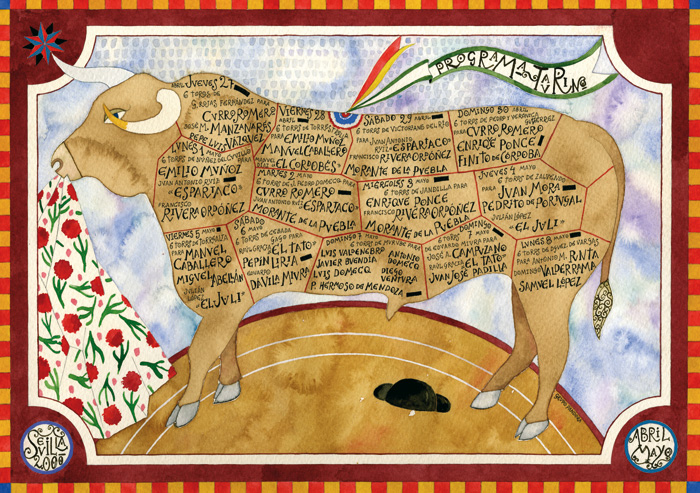 PROGRAMA TAURINO
ABRIL JUEVES 27
6 TOROS DE
G. ROJAS FERNANDEZ PARA
CURRO ROMERO
JOSÉ M. MANZANARES
PEPE LUIS VÁZQUEZ
VIERNES 28
ABRIL
6 TOROS DE TORRESTRELLA
PARA
EMILIO MUÑOZ
MANUEL CABALLERO
MANUEL DÍAZ
EL CORDOBÉS
SÁBADO 29 ABRIL
6 TOROS DE VICTORIANO DEL RÍO
PARA JUAN ANTONIO
RUIZ "ESPARTACO"
FRANCISCO RIVERA ORDÓÑEZ
MORANTE DE LA PUEBLA
DOMINGO 30 ABRIL
PARA CURRO ROMERO
ENRIQUE PONCE
FINITO DE CÓRDOBA
LUNES 1 MAYO
6 TOROS DE NÚÑEZ DEL CUVILLO
PARA
EMILIO MUÑOZ
JUAN ANTONIO RUIZ
"ESPARTACO"
FRANCISCO
RIVERA ORDÓÑEZ
MARTES 2 MAYO
6 TOROS DE J. PEDRO DOMECQ PARA
CURRO ROMERO
JUAN ANTONIO RUIZ "ESPARTACO"
MORANTE DE LA PUEBLA
MIERCOLES 3 MAYO
6 TOROS DE JANDILLA PARA
ENRIQUE PONCE
FRANCISCO RIVERA ORDÓÑEZ
MORANTE DE LA PUEBLA
JUEVES 4 MAYO
6 TOROS DE ZALDUENDO
PARA
JUAN MORA
PEDRITO DE PORTUGAL
JULIÁN LÓPEZ
"EL JULI"
VIERNES 5 MAYO
6 TOROS DE TORREALTA
PARA MANUEL
CABALLERO
MIGUEL ABELLÁN
JULIÁN
LÓPEZ
"EL JULI"
SÁBADO
6 MAYO
6 TOROS DE CEBADA
GAGO PARA
RAÚL GRACIA "EL TATO"
PEPÍN LIRIA
EDUARDO
DÁVILA MIURA
DOMINGO 7 MAYO
6 TOROS DE MURUBE PARA
LUIS VALDENEBRO
JAVIER BUENDÍA
LUIS DOMECQ
ANTONIO
DOMECQ
DIEGO
VENTURA
P. HERMOSO DE MENDOZA
DOMINGO
7 MAYO
6 TOROS
DE EDUARDO MIURA PARA
JOSÉ A. CAMPUZANO
RAÚL GRACIA "EL TATO"
JUAN JOSÉ PADILLA
LUNES 8 MAYO
PARA ANTONIO M. PUNTA
DOMINGO VALDERRAMA
SAMUEL LÓPEZ
SEVILLA
2000
ABRIL
MAYO